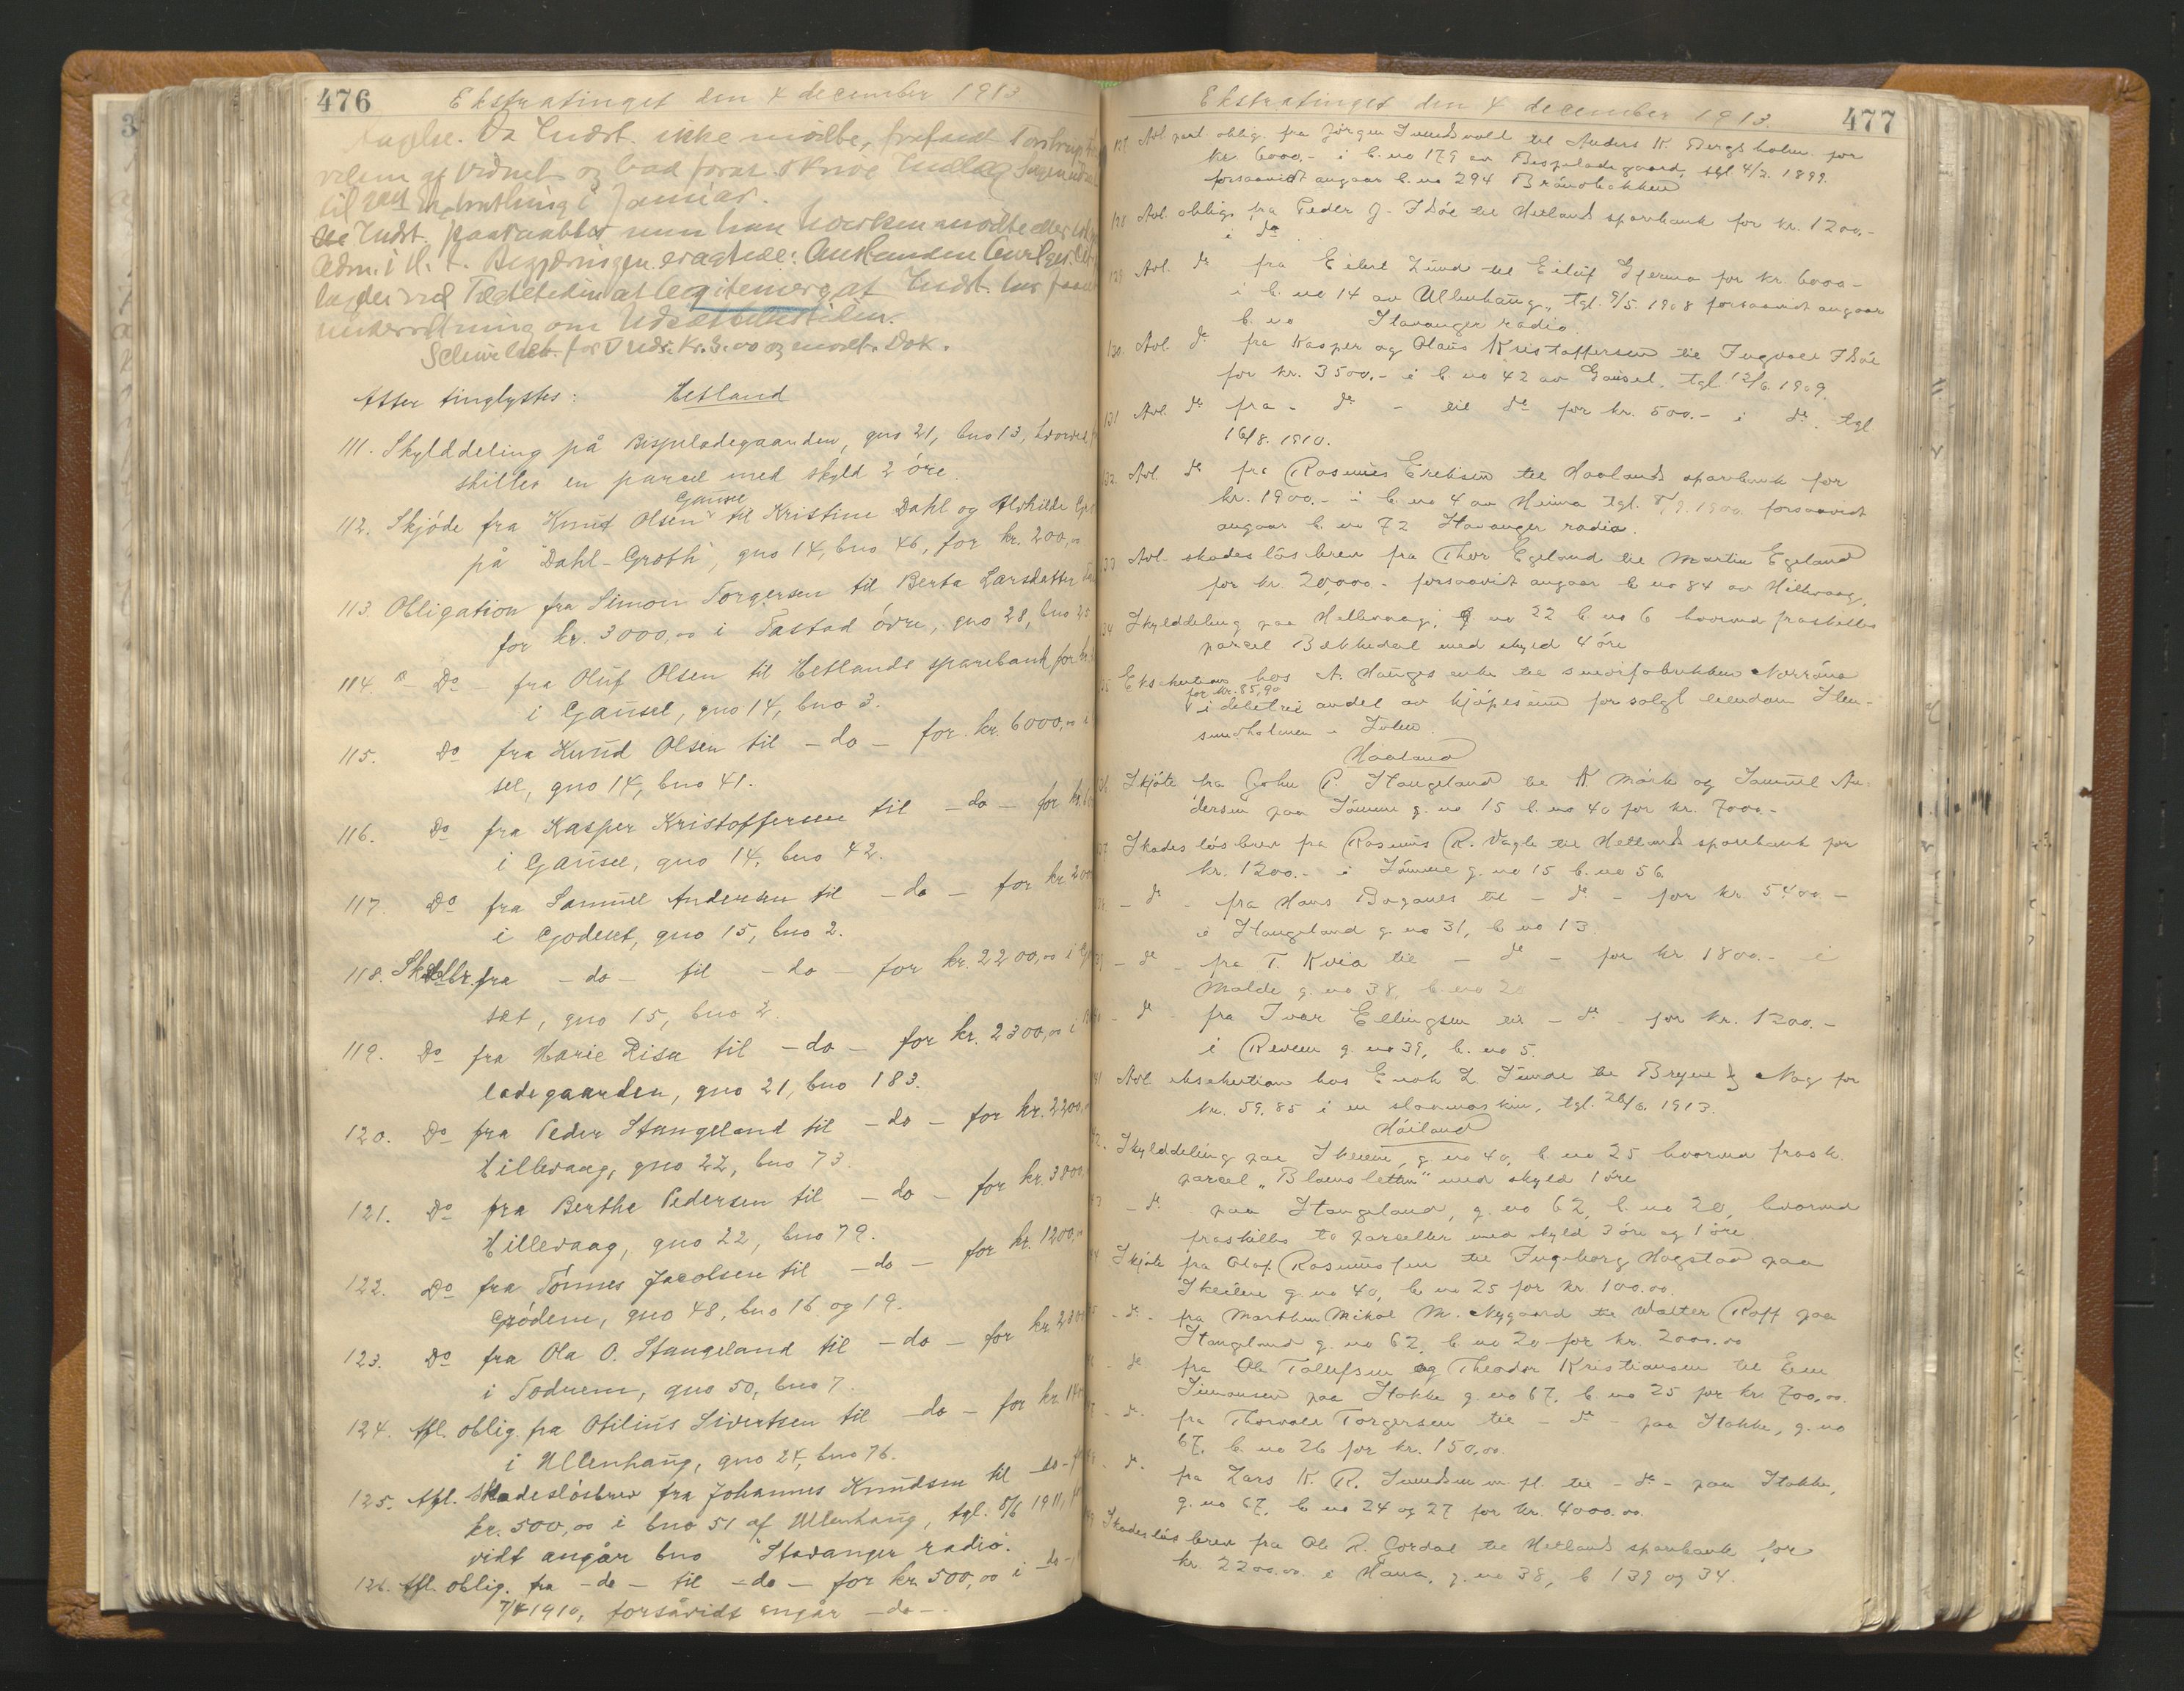 476
Ekstratinget den 4 december 1913
Indst. ikke mødte,
vidnet og bad
til i Januar.
Indst. paaraabtes men han hverken mødte eller
Begjæringen
Indst.
Kr. 3.00 og Dok.
Atter tinglystes: Hetland
111. Skylddeling på Bispeladegaarden, gno 21, bno 13, hvorved
skilles en parcel med skyld 2 øre.
112. Skjøde fra Knut Olsen Gausel til Kristine Dahl og Alvhilde
på "Dahl-Groth", gno 14, bno 46, for kr. 200,00
113. Obligation fra Simon Torgersen til Berta Larsdatter
for kr. 3000,00 i Tastad øvre, gno 28, bno 25
114. - Do - fra Oluf Olsen til Hetlands sparebank for kr.
i Gausel, gno 14, bno 3.
115. Do fra Knud Olsen til - do - for kr. 6000,00 i
sel, gno 14, bno 41.
116. Do fra Kasper Kristoffersen til - do - for kr.
i Gausel, gno 14, bno 42.
117. Do fra Samuel Andersen til - do - for kr. 200
i Godeset, gno 15, bno 2.
118. Skdlbr. fra - do - til - do - for kr. 2200,00 i
set, gno 15, bno 2.
119. Do fra Marie Risa til - do - for kr. 2300,00 i
ladegaarden, gno 21, bno 183.
120. Do fra Peder Stangeland til - do - for kr. 2200,
Hillevaag, gno 22, bno 73.
121. Do fra Berthe Pedersen til - do - for kr. 3800,
Hillevaag, gno 22, bno 79.
122. Do fra Tønnes Jacobsen til - do - for kr. 1200,00
Grødem, gno 48, bno 16 og 19.
123. Do fra Ola O. Stangeland til - do - for kr. 2300
i Todnem, gno 50, bno 7.
124. Afl. oblig. fra Otilius Sivertsen til - do - for kr. 140
i Ullenhaug, gno 24, bno 76.
125. Afl. skadesløsbrev fra Johannes Knudsen til - do -
kr. 500,00 i bno 51 af Ullenhaug, tgl. 8/6 1911,
vidt angår bno "Stavanger radio".
126. Afl. oblig. fra - do - til - do - for kr. 500,00 i - do -
7/4 1910, forsåvidt angår - do -.
Ekstratinget den 4 december 1913. 477
127 Avl. pant. oblig. fra Jørgen Sundvold til Anders K. Bergsholm for
kr. 6000,- i b. no 179 av Bispeladegaard, tgl 4/2. 1899.
forsaavidt angaar b. no 294 Brandbakken
128 Avl. obliga fra Peder J. Idsøe til Hetlands sparebank for kr. 1200.-
i do
129 Avl. do fra Eilert Lund til Eiluf Gjerma for kr. 6000-
i b. no 14 av Ullenhaug, tgl. 9/5. 1908 forsaavidt angaar
b. no Stavanger radio.
130. Avl. do fra Kasper og Olaus Kristoffersen til Ingvald Idsøe
for kr. 3500.- i b. no 42 av Gausel. tgl 12/6. 1909.
131 Avl. do fra - do - til do for kr. 500.- i do tgl
16/8. 1910.
132. Avl. do fra Rasmus Eriksen til Haalands sparebank for
kr. 1900.- i b. no 4 av Heima tgl. 8/9. 1900. forsaavidt
angaar b. no 72 Stavanger radio.
133 Avl. skadesløsbrev fra Thor Egeland til Martin Egeland
for kr. 20,000- forsaavidt angaar b. no 84 av Hillevaag.
134 Skylddeling paa Hillevaag, g no 22 b no 6 hvorved fraskilles
parcel Bækkedal med skyld 4 øre
135 Eksekution hos A. Hauges enke til snørefabrikken Norrøna
for kr. 85,90
i debetrei andel av kjøpesum for solgt eiendom Sten-
sundholmen i Tolen.
Haaland
136 Skjøte fra John P. Stangeland til K. Mørk og Samuel An-
dersen paa Sømme g. no 15 b. no 40 for kr. 7000.-
137 Skadesløsbrev fra Rasmus R. Vagle til Hetlands sparebank for
kr. 1200.- i Sømme g. no 15 b. no 56
138. - do - fra Hans Bogenes til - do - for kr. 5400.-
i Stangeland g no 31, b no 13.
139 - do - fra T. Kvia til - do - for kr 1800.- i
Malde g. no 38, b. no 20
140 - do - fra Ivar Ellingsen til - do - for kr. 1200.-
i Reveim g. no 39, b. no 5.
141 Avl eksekution hos Enok L. Tunge til Bryne & Nag for
kr. 59.85 i en slaamaskin, tgl. 26/6. 1913.
Høiland
142. Skylddeling paa Skeiene, g. no 40, b. no 25 hvorved frask.
parcel "Blomsletten" med skyld 1 øre
143 - do paa Stangeland, g. no 62, b. no 20, hvorved
fraskilles to parceller med skyld 3 øre og 1 øre.
144 Skjøte fra Olaf Rasmussen til Ingeborg Hogstad paa
Skeiene g. no 40, b. no 25 for kr. 100.00.
145 - do - fra Marthin Mikal M. Nygaard til Walter Roff paa
Stangeland g. no 62, b. no 20 for kr. 2000.00
146 - do. fra Ole Tollefsen og Theodor Kristiansen til Em
Simonsen paa Stokke g. no 67, b. no 25 for kr. 700,00.
147 - do. fra Thorvald Torgersen til - do - paa Stokke, g. no
67, b. no 26 for kr. 150.00.
148 - do. fra Lars K. R. Sundsen m. fl. til - do - paa Stokke,
g. no 67, b. no 24 og 27 for kr. 4000.00.
149 Skadesløsbrev fra Ole R. Gordal til Hetlands sparebank for
kr. 2200.00. i Hana, g. no 38, b. 139 og 34.